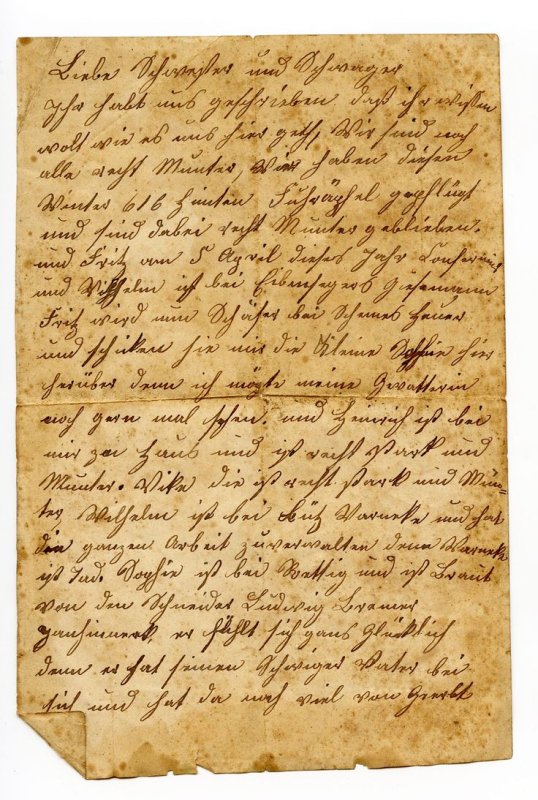 Liebe Schwester und Schwager
Ihr habt uns geschrieben daß ihr wissen
wolt wie es uns hier geth, Wir sind noch
alle recht Munter, Wir haben diesen
Winter 616 Himten gepflügt
und sind dabei recht Munter geblieben.
und Fritz am 5 April dieses Jahr
und Wilhelm ist bei
Fritz wird nun Schäfer bei
und schiken sie mir die kleine Sophie hier
herüber denn ich mögte meine Gevatterin
noch gern mal sehen. und Heinrich ist bei
mir zu Haus und ist recht stark und
Munter. die ist recht stark und Mun-
ter, Wilhelm ist bei Varneke und hat
die ganzen Arbeit zuverwalten denn Varneke
ist Tod. Sophie ist bei Rettig und ist Braut
von den Schneider Ludwig Bremer
er fühlt sich gans Glücklich
denn er hat seinen Schwiger Vater bei
sich und hat da noch viel von Geerbt